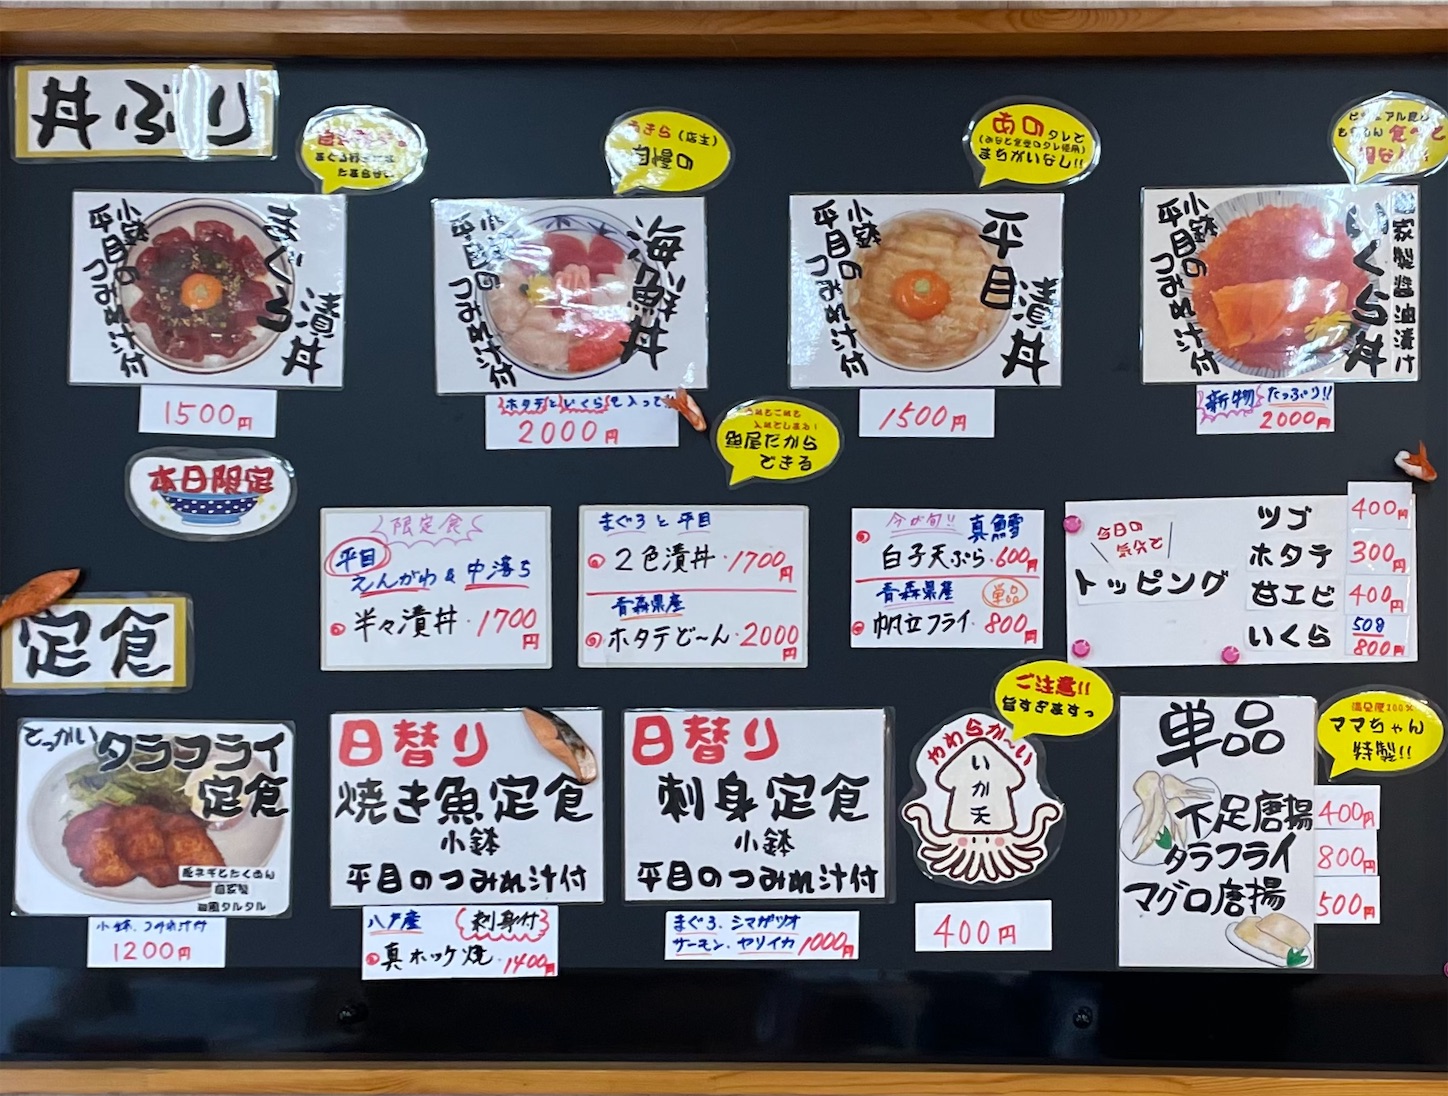 丼ぶり
まぐろ漬丼
小鉢
平目のつみれ汁付
1500円
あきら(店主)
自慢の
海鮮丼
小鉢
平目のつみれ汁付
ホタテといくらも入って
2000円
あの タレで
まちがいなし!!
平目漬丼
小鉢
平目のつみれ汁付
1500円
ビジュアル良し
もちろん 食べて
自家製醤油漬け
いくら丼
小鉢
平目のつみれ汁付
新物 たっぷり!!
2000円
本日限定
魚屋だから
できる
限定食
平目
えんがわ & 中落ち
半々漬丼・1700円
まぐろと平目
2色漬丼・1700円
青森県産
ホタテど〜ん・2000円
今が旬!! 真鱈
白子天ぷら・600円
青森県産 単品
帆立フライ・800円
今日の
気分で
トッピング
ツゴ 400円
ホタテ 300円
甘エビ 400円
いくら 50g 800円
定食
でっかい
タラフライ
定食
長ネギとたくあん
自家製
和風タルタル
小鉢、つみれ汁付
1200円
日替り
焼き魚定食
小鉢
平目のつみれ汁付
八戸産 (刺身付)
真ホッケ焼・1400円
日替り
刺身定食
小鉢
平目のつみれ汁付
まぐろ、シマガツオ
サーモン、ヤリイカ 1000円
ご注意!!
旨すぎますっ
やわらか〜い
いか天
400円
単品
満足度200%
ママちゃん
特製!!
下足唐揚 400円
タラフライ 800円
マグロ唐揚 500円